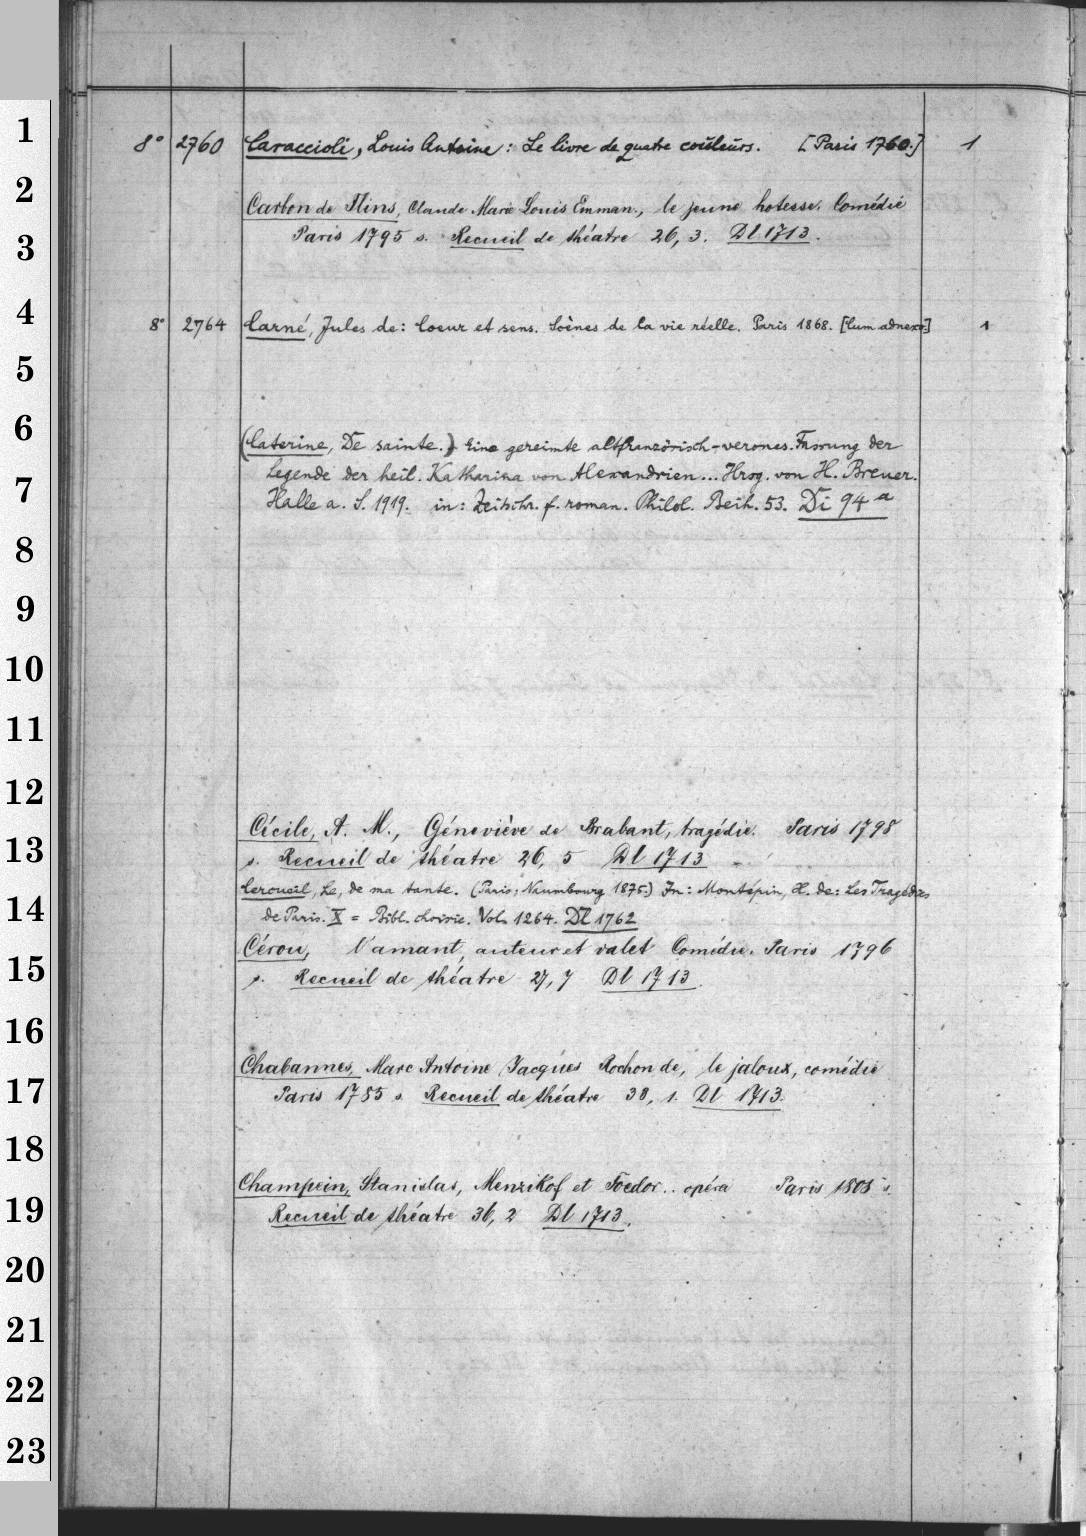 1
8° 2760 Caraccioli, Louis Antoine: Le livre de quatre couleurs. [Paris 1760.] 1
2
Carbon de Flins, Claude Marie Louis Emman., le jeune hotesse. Comédie
3
Paris 1795 s. Recueil de théatre 26, 3. Dl 1713.
4
8° 2764 Carné, Jules de: Coeur et sens. Scènes de la vie réelle. Paris 1868. [Cum adnexo] 1
5
6
(Caterine, De sainte.) Eine gereimte altfranzösisch-verones. Fassung der
Legende der heil. Katharina von Alexandrien... Hrsg. von H. Breuer.
7
Halle a. S. 1919. in: Zeitschr. f. roman. Philol. Beih. 53. Di 94 a
8
9
10
11
12
Cécile, A. M., Géneviève de Brabant, tragédie. Paris 1798
13
s. Recueil de théatre 26, 5 Dl 1713
Cercueil, Le, de ma tante. (Paris: Naumbourg 1875.) In: Montépin, X. de: Les Tragédies
14
de Paris. X = Bibl. choisie. Vol. 1264. Dl 1762
Cérou, l'amant, auteur et valet Comédie. Paris 1796
15
s. Recueil de théatre 27, 7 Dl 1713.
16
Chabannes, Marc Antoine Jacques Rochon de, le jaloux, comédie
17
Paris 1785 s. Recueil de théatre 38, 1. Dl 1713.
18
Champein, Stanislas, Menzikof et Foedor.. opéra Paris 1808 s.
19
Recueil de théatre 36, 2 Dl 1713.
20
21
22
23